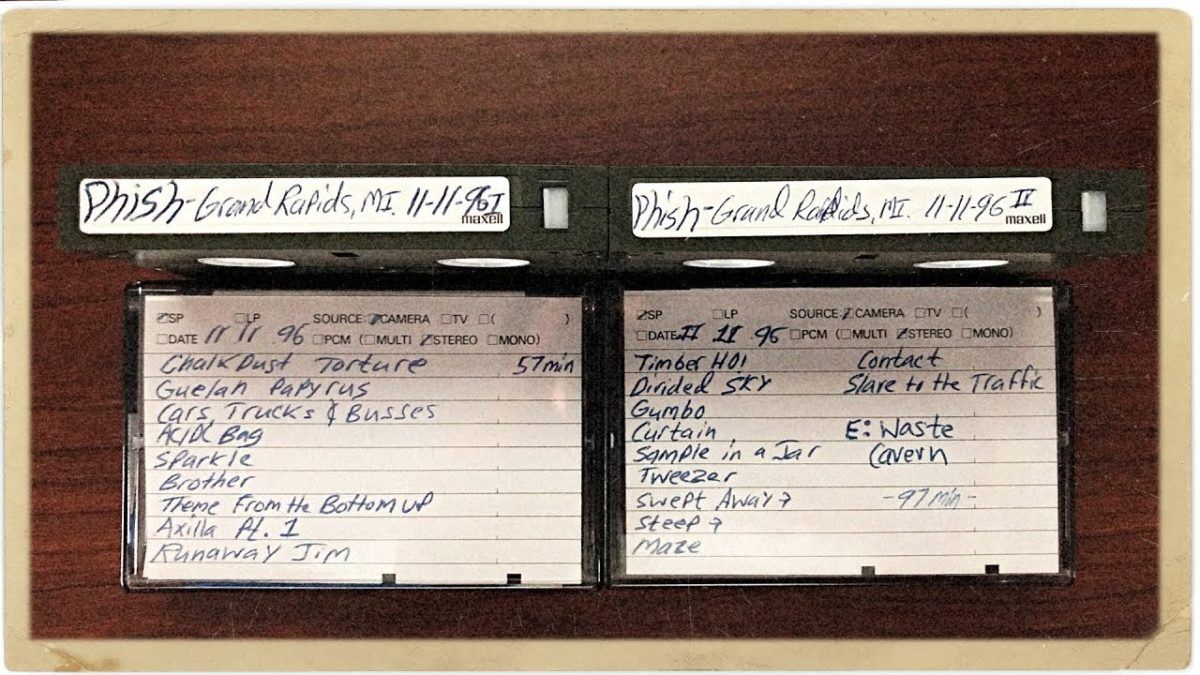 Phish-Grand Rapids, MI. 11-11-96 I
maxell
Phish-Grand Rapids, MI. 11-11-96 II
maxell
SP LP SOURCE: CAMERA TV ( )
DATE 11 11 .96 PCM (MULTI STEREO MONO)
Chalk Dust Torture 57min
Guelah Papyrus
Cars, Trucks & Busses
AC/DC Bag
Sparkle
Brother
Theme From the Bottom up
Axilla Pt. 1
Runaway Jim
SP LP SOURCE: CAMERA TV ( )
DATE 11 11 .96 PCM (MULTI STEREO MONO)
Timber HO! Contact
Divided Sky Slave to the Traffic
Gumbo
Curtain E: Waste
Sample in a Jar Cavern
Tweezer
Swept Away → -97min-
Steep →
Maze